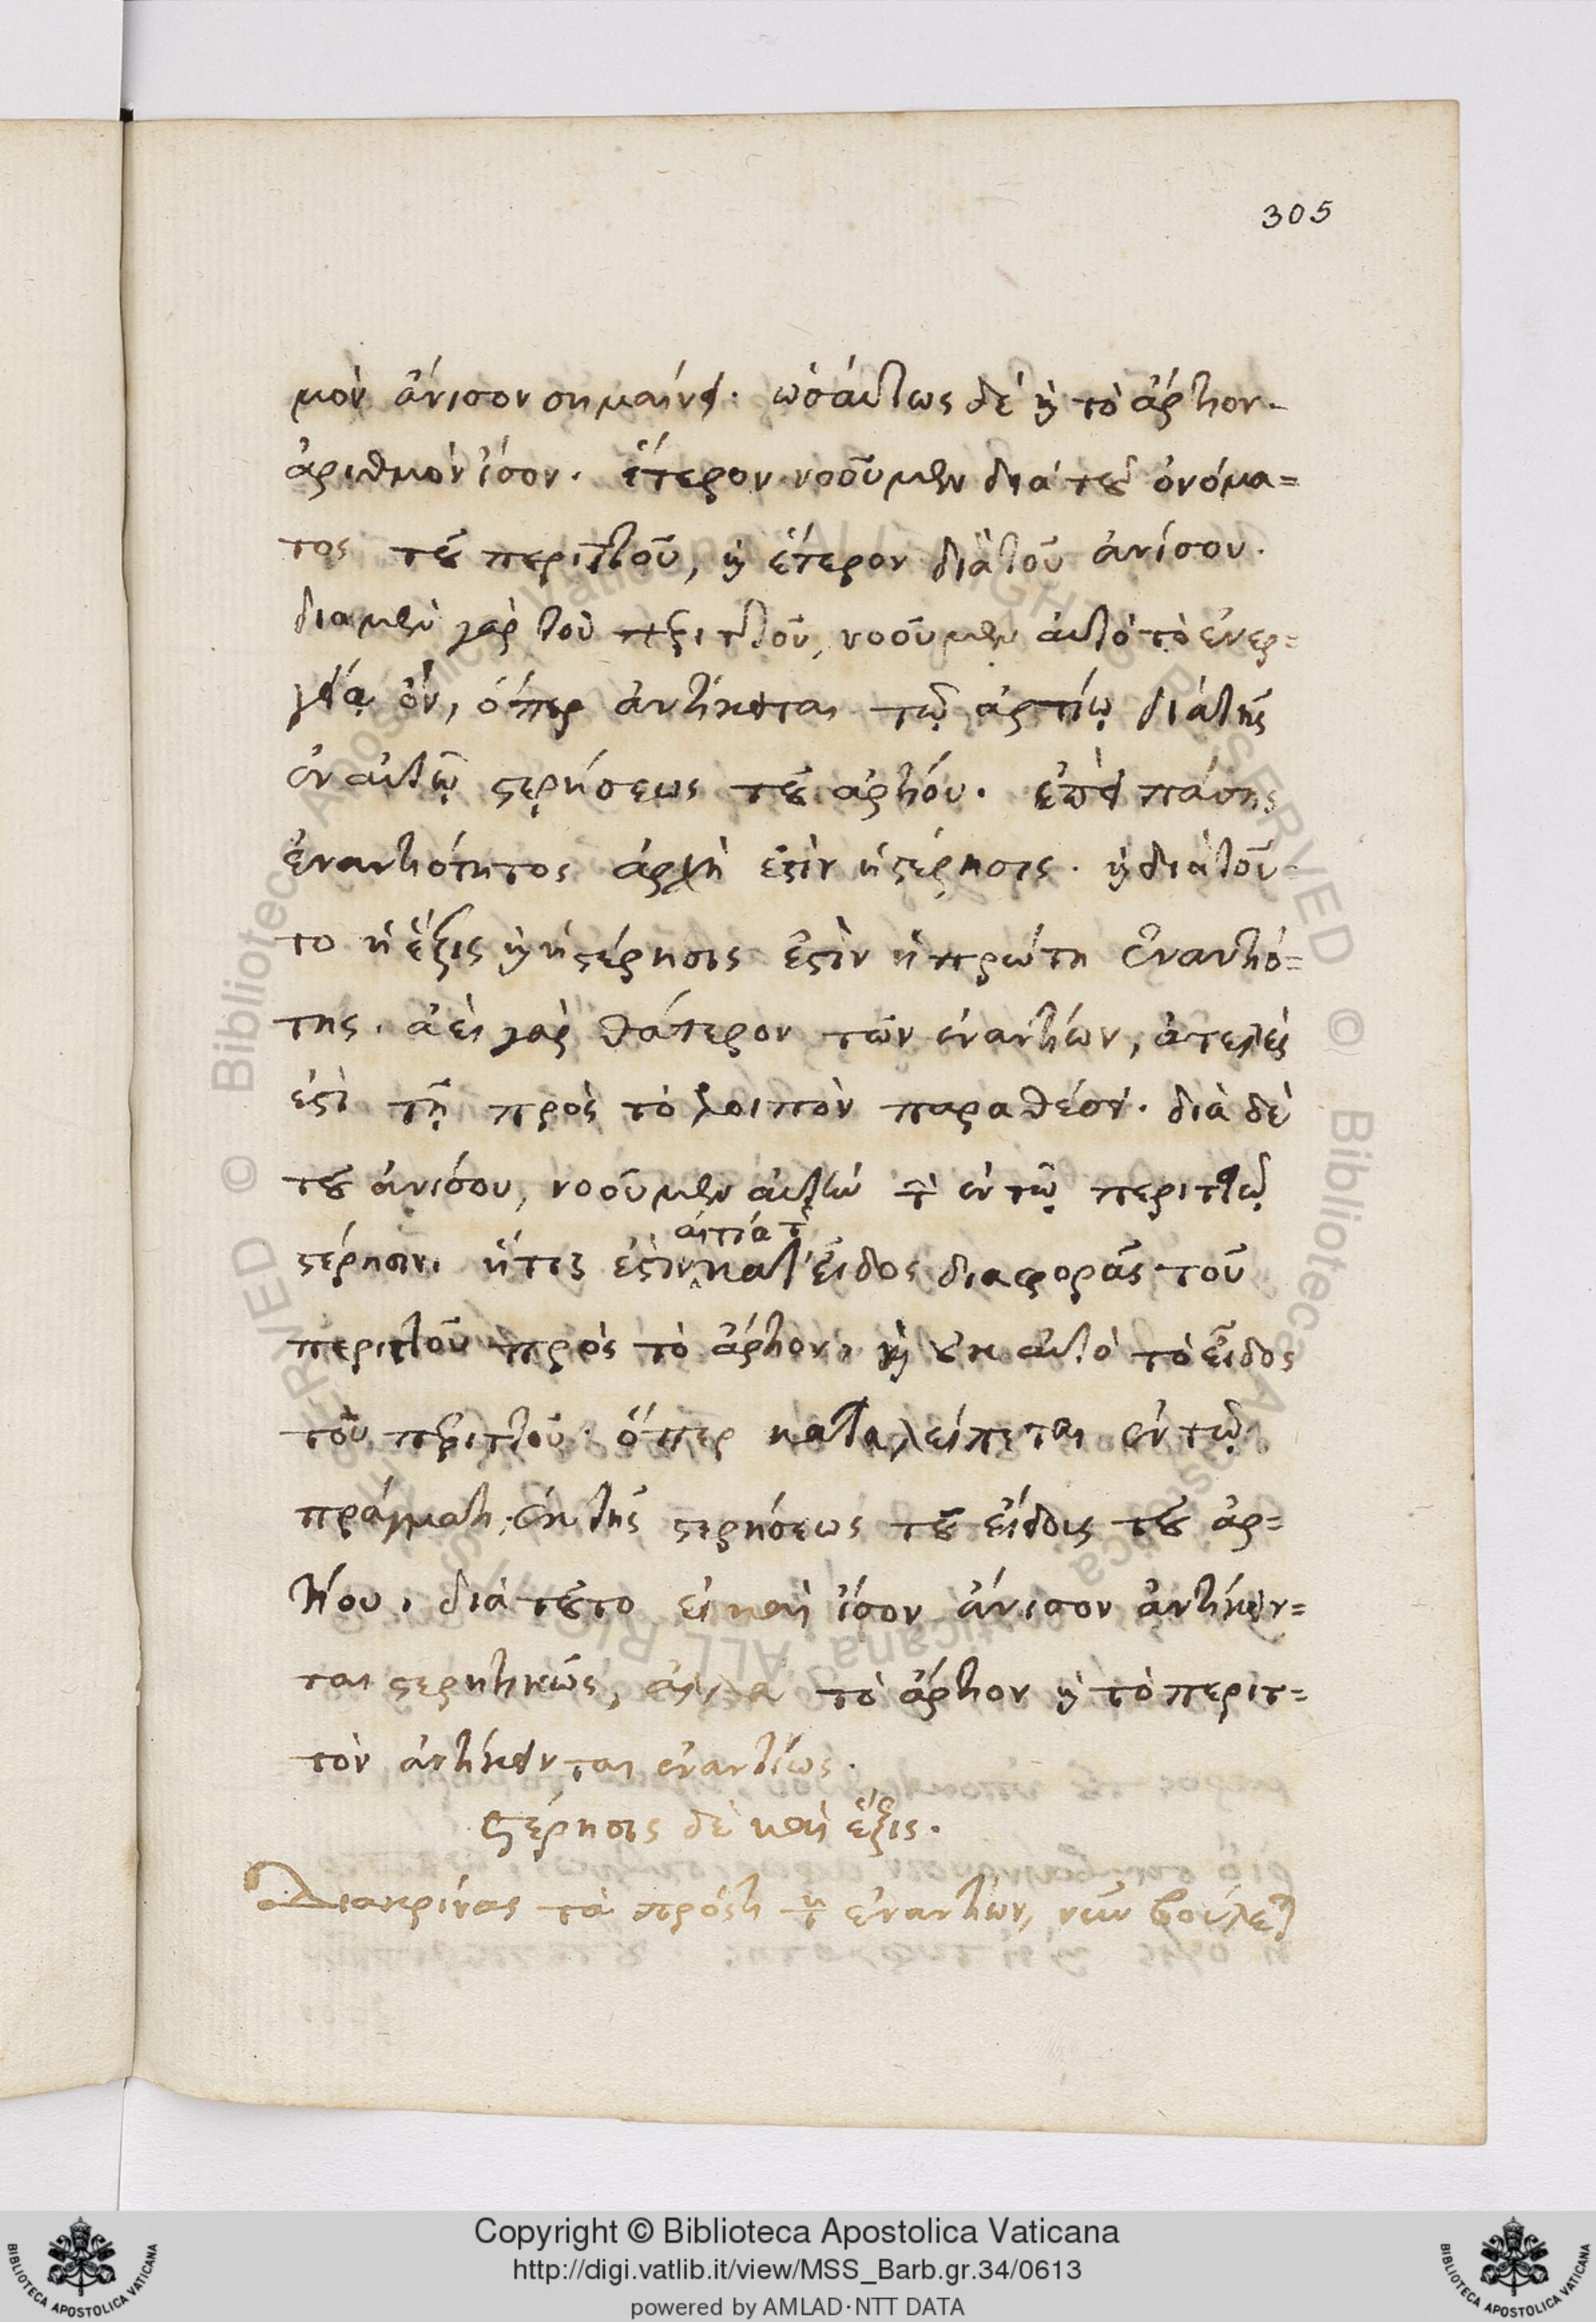 305
μὸν ἄνισον σημαίνει. ὡσαύτως δὲ καὶ τὸ ἄρτιον
ἀριθμὸν ἴσον. ἕτερον νοοῦμεν διὰ τοῦ ὀνόμα=
τος τοῦ περιττοῦ, καὶ ἕτερον διὰ τοῦ ἀνίσου.
διὰ μὲν γὰρ τοῦ περιττοῦ, νοοῦμεν αὐτὸ τὸ ἐνερ=
γείᾳ ὄν, ὅπερ ἀντίκειται τῷ ἀρτίῳ διὰ τῆς
ἐν αὐτῷ στερήσεως τοῦ ἀρτίου. ἐπεὶ πάσης
ἐναντιότητος ἀρχὴ ἐστὶν ἡ στέρησις. καὶ διὰ τοῦ
το ἡ ἕξις καὶ ἡ στέρησις ἐστὶν ἡ πρώτη ἐναντιό=
της. ἀεὶ γὰρ θάτερον τῶν ἐναντίων, ἀτελές
ἐστὶ τῇ πρὸς τὸ λοιπὸν παραθέσει. διὰ δὲ
τοῦ ἀνίσου, νοοῦμεν αὐτὴν τὴν ἐν τῷ περιττῷ
αἰτία τῆς
στέρησιν. ἥτις ἐστὶν κατ' εἶδος διαφορᾶς τοῦ
περιττοῦ πρὸς τὸ ἄρτιον. καὶ οὐκ αὐτὸ τὸ εἶδος
τοῦ περιττοῦ. ὅπερ καταλείπεται ἐν τῷ
πράγματι ἐκ τῆς στερήσεως τοῦ εἴδους τοῦ ἀρ=
τίου. διὰ τοῦτο εἰ καὶ ἴσον ἄνισον ἀντίκειν=
ται στερητικῶς, ἀλλὰ τὸ ἄρτιον καὶ τὸ περιτ=
τὸν ἀντίκεινται ἐναντίως.
Στέρησις δὲ καὶ ἕξις.
Διακρίνας τὰ πρόστι τῶν ἐναντίων, νῦν βούλεται
Copyright © Biblioteca Apostolica Vaticana
http://digi.vatlib.it/view/MSS_Barb.gr.34/0613
powered by AMLAD·NTT DATA